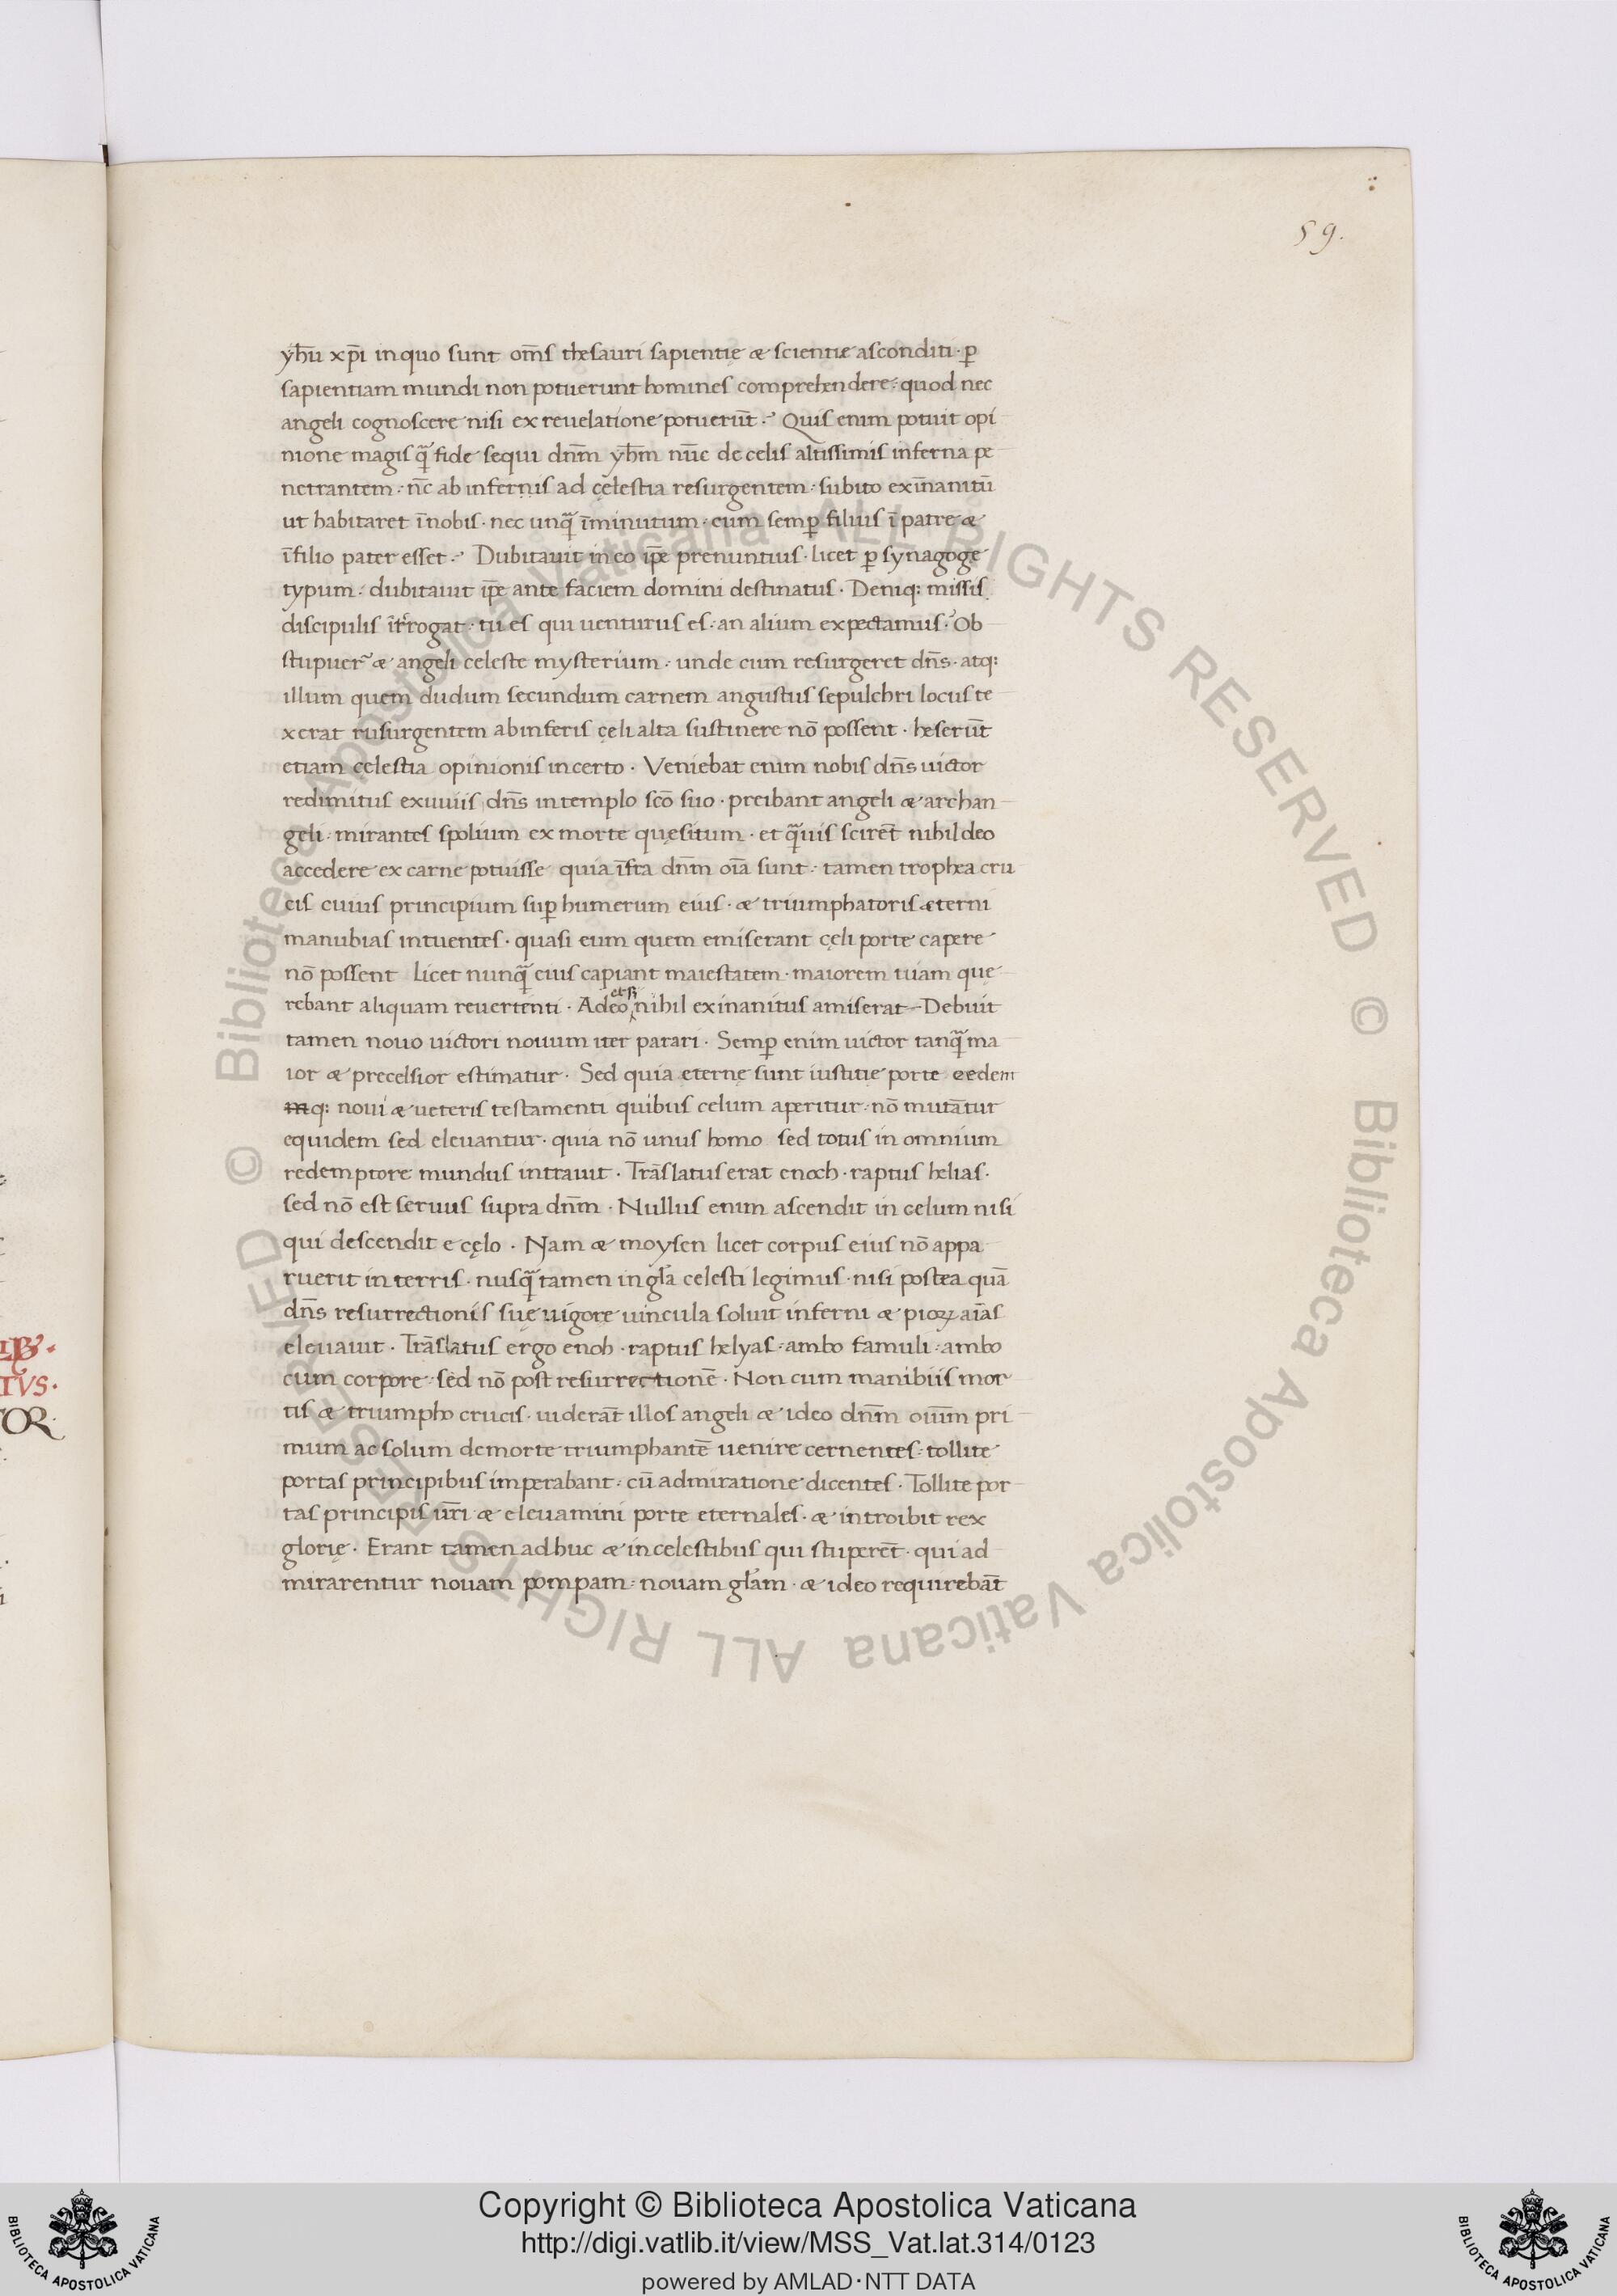 59.
yh̄u xp̄i in quo sunt om̄s thesauri sapientię & scientię asconditi · ꝑ
sapientiam mundi non potuerunt homines comprehendere : quod nec
angeli cognoscere nisi ex reuelatione potuerūt . Quis enim potuit opi
nione magis ꝗ̄ fide sequi dn̄m yh̄m nūc de celis altissimis inferna pe
netrantem : nc̄ ab infernis ad cęlestia resurgentem : subito exīnanitū
ut habitaret ī nobis · nec unꝗ̄ īminutum · cum semꝑ filius ī patre &
ī filio pater esset . Dubitauit in eo ip̄e prenuntius · licet ꝑ synagogę
typum : dubitauit ip̄e ante faciem domini destinatus · Deniq: missis
discipulis īt̄rogat · tu es qui uenturus es · an alium expectamus . Ob
stupuer̄ & angeli celeste mysterium : unde cum resurgeret dn̄s · atq:
illum quem dudum secundum carnem angustus sepulchri locus te
xerat rusurgentem ab inferis cęli alta sustinere nō possent · heserūt
etiam celestia opinionis incerto · Veniebat enim nobis dn̄s uictor
redimitus exuuiis dn̄s in templo sc̄o suo · preibant angeli & archan
geli : mirantes spolium ex morte quęsitum · et ꝗ̄uis scirēt nihil deo
accedere ex carne potuisse quia īfra dn̄m oīa sunt : tamen trophea cru
cis cuius principium suꝑ humerum eius · & triumphatoris æterni
manubias intuentes · quasi eum quem emiserant cęli porte capere
nō possent licet nunꝗ̄ eius capiant maiestatem · maiorem uiam quę
rebant aliquam reuertenti · Adeo nihil exinanitus amiserat Debuit
tamen nouo uictori nouum iter parari · Semꝑ enim uictor tanꝗ̄ ma
ior & precelsior estimatur · Sed quia eternę sunt iustitię porte eedem
mq: noui & ueteris testamenti quibus celum aperitur · nō mutātur
equidem sed eleuantur · quia nō unus homo sed totus in omnium
redemptore mundus intrauit · Trāslatus erat enoch · raptus helias ·
sed nō est seruus supra dn̄m · Nullus enim ascendit in celum nisi
qui descendit e cęlo · Nam & moysen licet corpus eius nō appa
ruerit in terris · nusꝗ̄ tamen in gl̄a celesti legimus · nisi postea quā
dn̄s resurrectionis suę uigore uincula soluit inferni & pioꝝ aīas
eleuauit · Trāslatus ergo enoh · raptus helyas : ambo famuli : ambo
cum corpore : sed nō post resurrectionē · Non cum manibiis mor
tis & triumpho crucis · uiderāt illos angeli & ideo dn̄m oīum pri
mum ac solum de morte triumphantē uenire cernentes : tollite
portas principibus imperabant : cū admiratione dicentes · Tollite por
tas principis ur̄i & eleuamini porte eternales · & introibit rex
glorię · Erant tamen adhuc & in celestibus qui stuperēt · qui ad
mirarentur nouam pompam : nouam gl̄am · & ideo requirebāt
TVS ·
Copyright © Biblioteca Apostolica Vaticana
http://digi.vatlib.it/view/MSS_Vat.lat.314/0123
powered by AMLAD·NTT DATA
BIBLIOTECA APOSTOLICA VATICANA
BIBLIOTECA APOSTOLICA VATICANA
© Biblioteca Apostolica Vaticana ALL RIGHTS RESERVED © Biblioteca Apostolica Vaticana ALL RIGHTS RESERVED